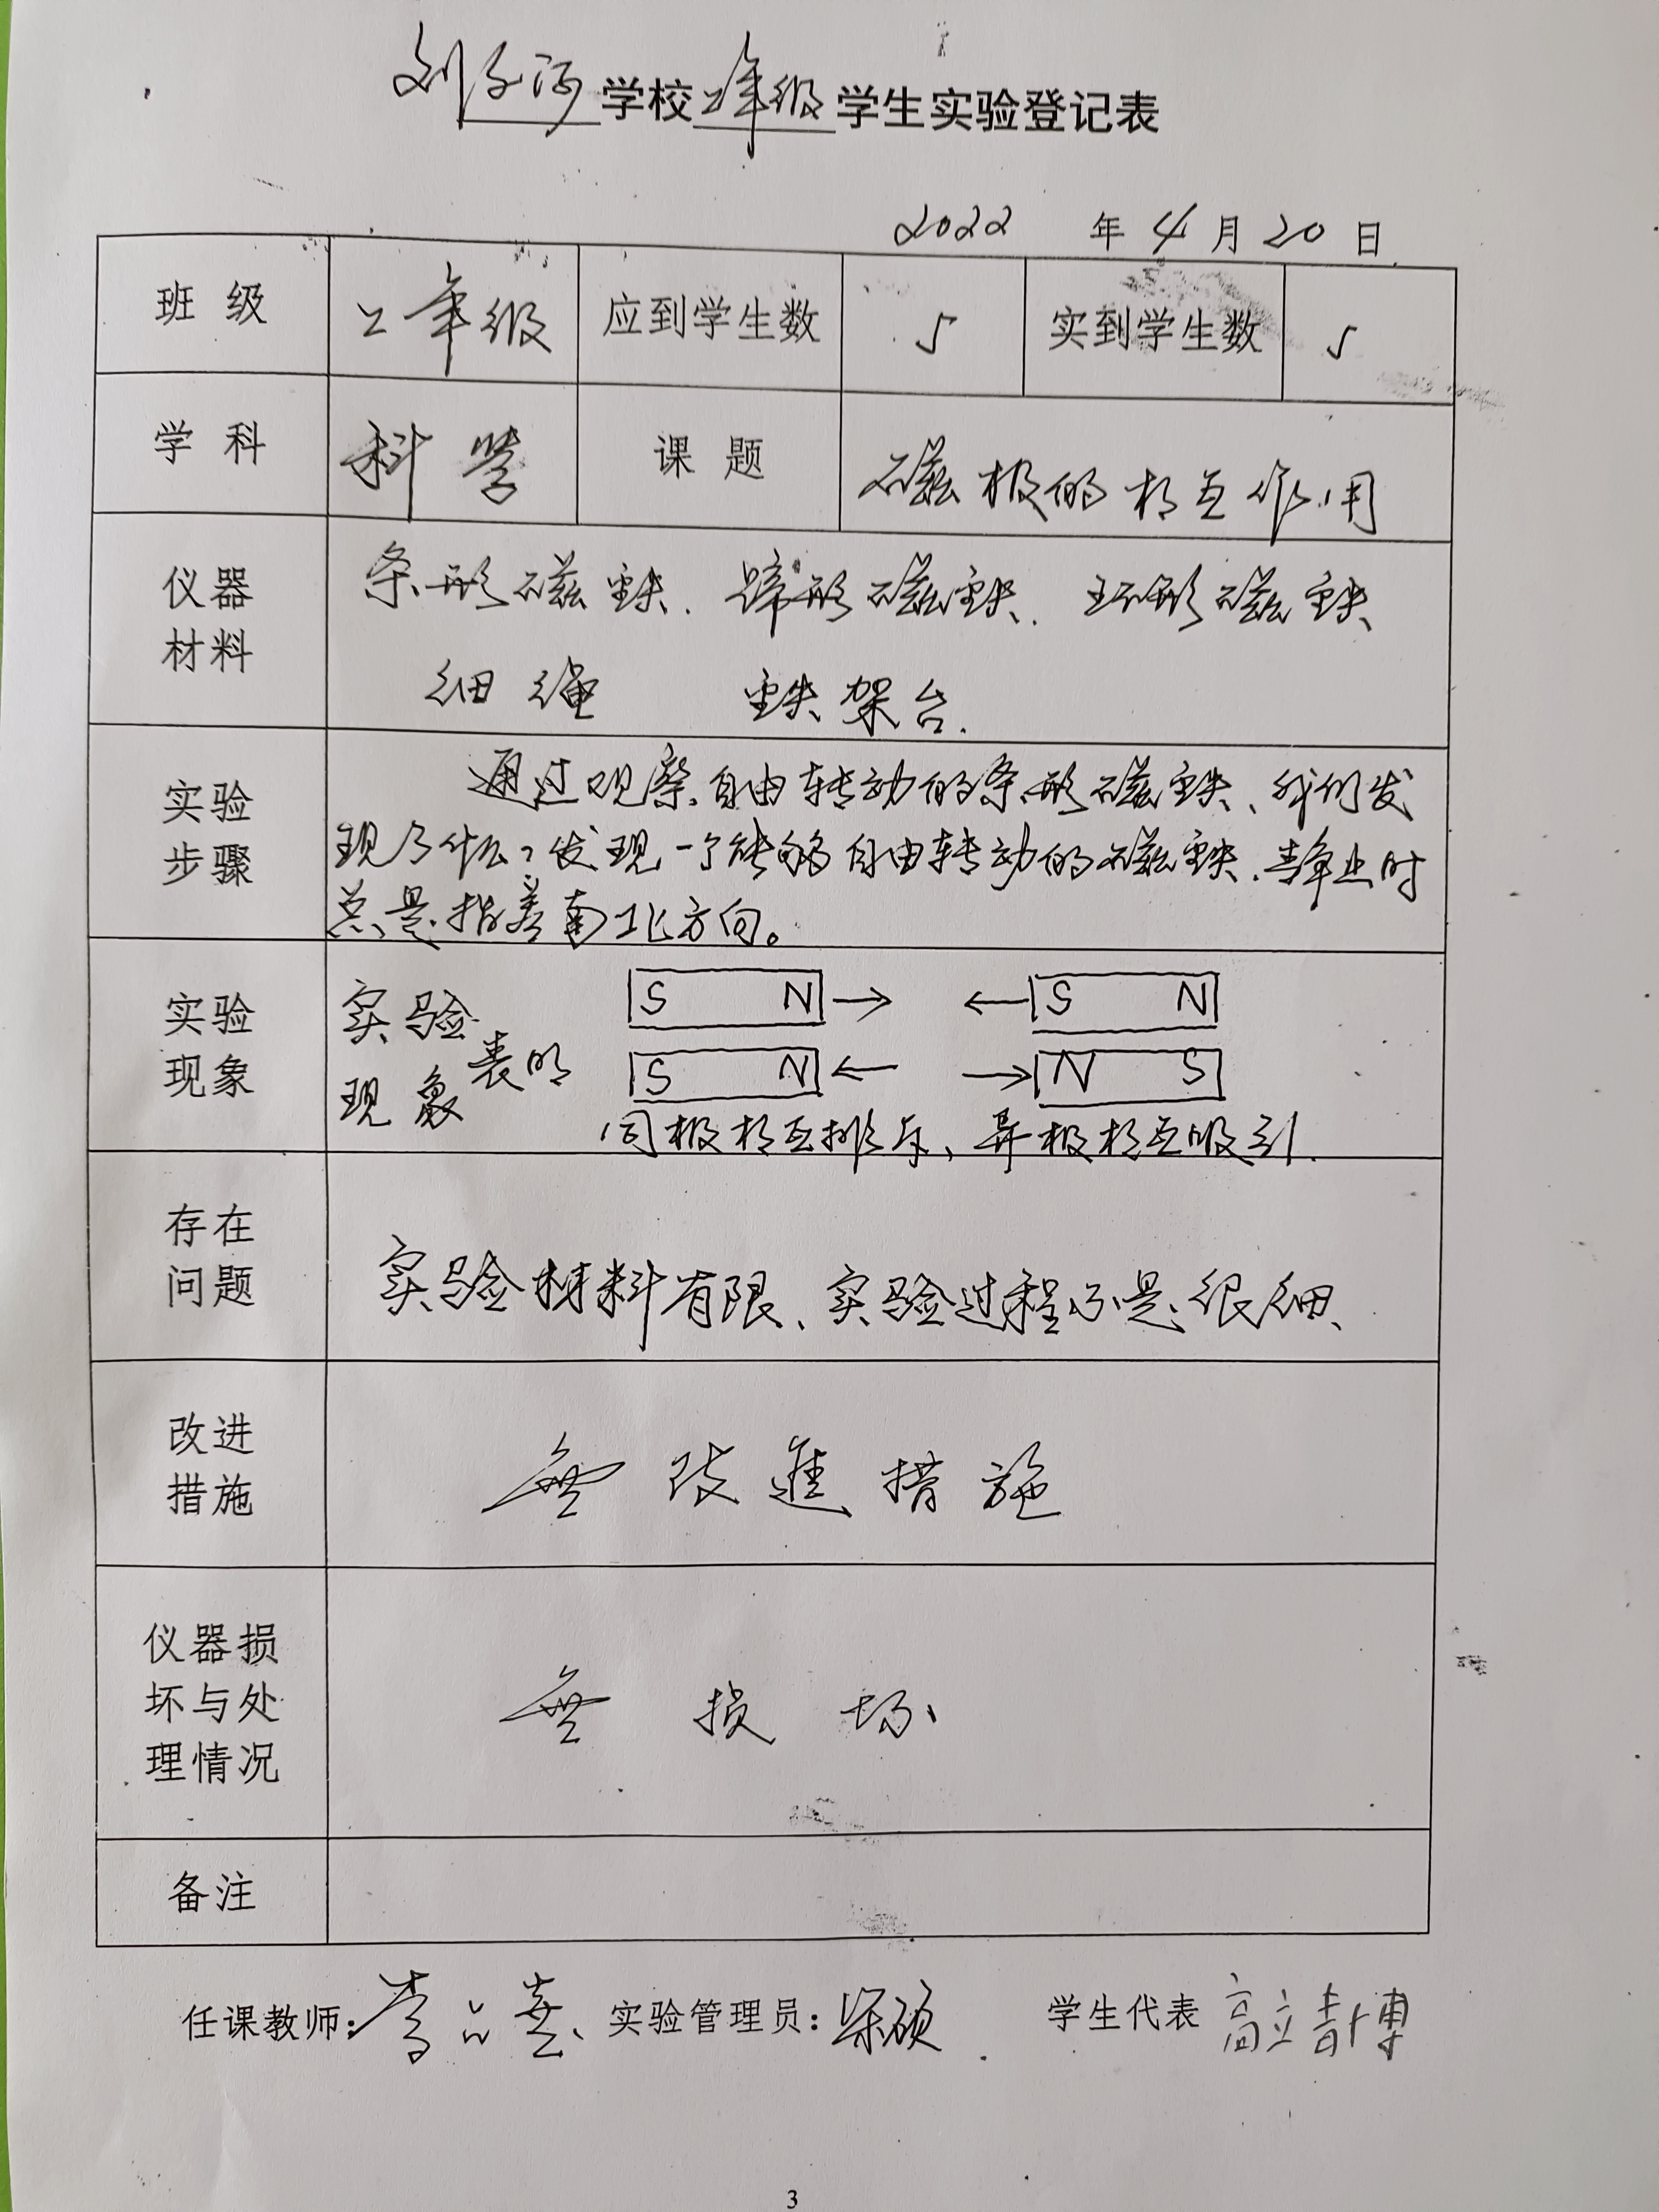 刘子河学校二年级学生实验登记表
2022 年 4 月 20 日
班级 二年级 应到学生数 5 实到学生数 5
学科 科学 课题 磁极的相互作用
仪器材料
条形磁铁. 蹄形磁铁. 环形磁铁
细绳 铁架台.
实验步骤
通过观察自由转动的条形磁铁、我们发
现了什么?发现一个能够自由转动的磁铁.静止时
总是指着南北方向。
实验现象
实验现象表明
S N → ← S N
S N ← → N S
同极相互排斥、异极相互吸引.
存在问题
实验材料有限、实验过程不是很细、
改进措施
無改進措施
仪器损坏与处理情况
無损坏
备注
任课教师: 实验管理员: 学生代表
3